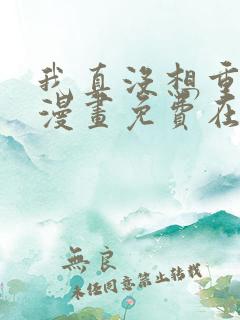 我真没想重
漫畫免費在
無良
未经同意禁止转载